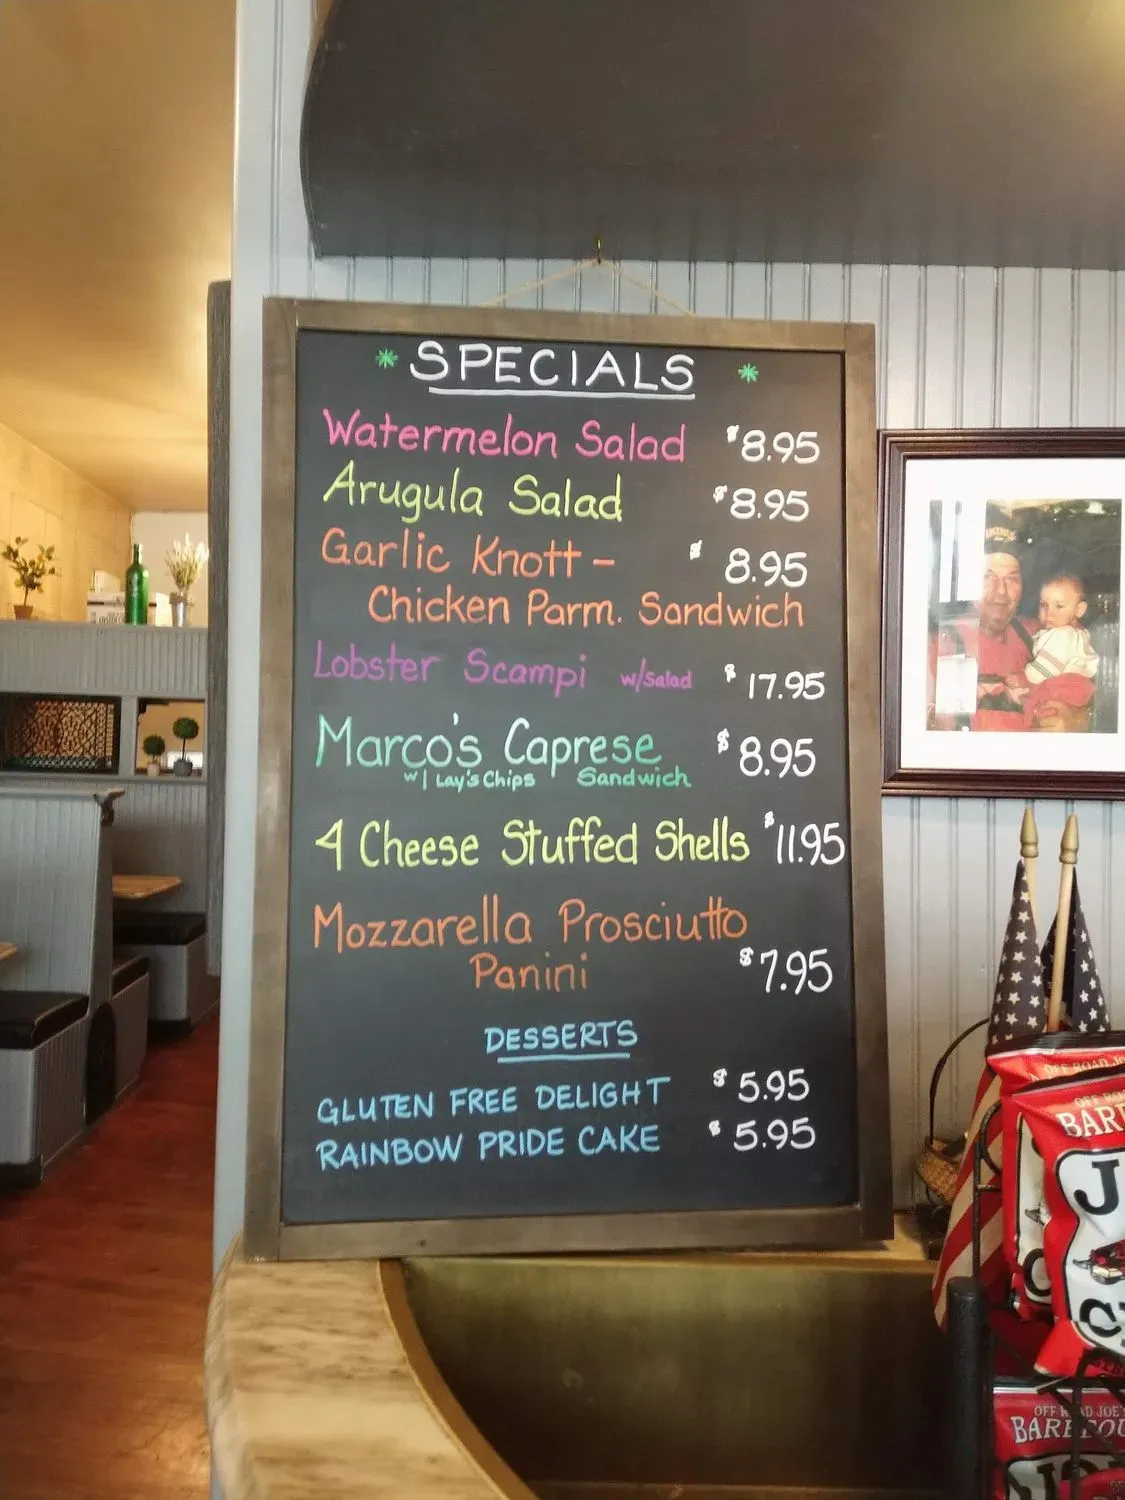 * SPECIALS *
Watermelon Salad $8.95
Arugula Salad $8.95
Garlic Knott - $8.95
Chicken Parm. Sandwich
Lobster Scampi w/Salad $17.95
Marco's Caprese $8.95
w/ Lay's Chips Sandwich
4 Cheese Stuffed Shells $11.95
Mozzarella Prosciutto
Panini $7.95
DESSERTS
GLUTEN FREE DELIGHT $5.95
RAINBOW PRIDE CAKE $5.95
OFF ROAD JO
BAR
J
OFF ROAD JOE'